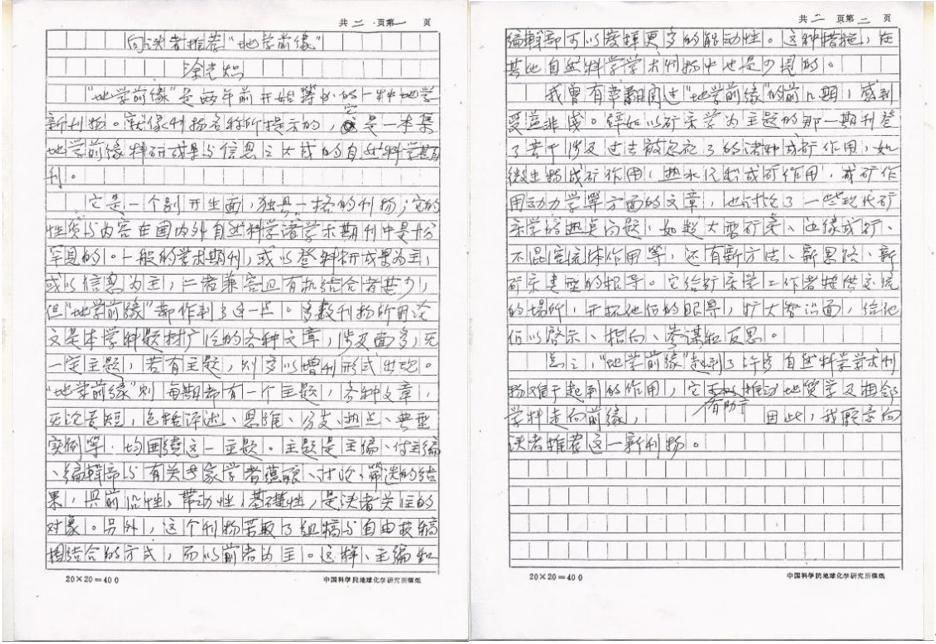 共二页第一页
向读者推荐“地学前缘”
涂光炽
“地学前缘”是两年前开始筹办的一种地学
新刊物。就像刊物名称所提示的，它是一本集
地学前缘科研成果与信息之大成的自然科学期
刊。
它是一个别开生面，独具一格的刊物；它的
性质与内容在国内外自然科学诸学术期刊中是十分
罕见的。一般的学术期刊，或以登科研成果为主，
或以信息为主，二者兼容且有机结合者甚少，
但“地学前缘”却作到了这一点。多数刊物所刊论
文是本学科题材广泛的各种文章，涉及面多，无
一定主题，若有主题，则多以增刊形式出现。
“地学前缘”则每期都有一个主题，各种文章，
无论长短，包括评述、思维、分支、热点、典型
实例等，均围绕这一主题。主题是主编、付主编
、编辑部与有关专家学者酝酿、讨论、筛选的结
果，具前沿性，带动性，基础性，是读者关注的
对象。另外，这个刊物采取了组稿与自由投稿
相结合的方式，而以前者为主。这样，主编和
20×20=400
中国科学院地球化学研究所稿纸
共二页第二页
编辑部可以发挥更多的能动性。这种措施，在
其他自然科学学术刊物中也是少见的。
我曾有幸翻阅过“地学前缘”的前几期，感到
受益非浅。譬如以矿床学为主题的那一期刊登
了若干涉及过去被忽视了的诸种成矿作用，如
微生物成矿作用，热水沉积成矿作用，成矿作
用动力学等方面的文章，也讨论了一些现代矿
床学的热点问题，如超大型矿床、边缘成矿、
不混溶流体作用等，还有新方法、新思路、新
矿床类型的报导。它给矿床学工作者提供交流
的场所，开拓他们的眼界，扩大知识面，给他
们以启示、指向、参谋和反思。
总之，“地学前缘”起到了许多自然科学学术刊
物难于起到的作用，它有助于推动地质学及相邻
学科走向前缘，因此，我愿意向
读者推荐这一新刊物。
20×20=400
中国科学院地球化学研究所稿纸